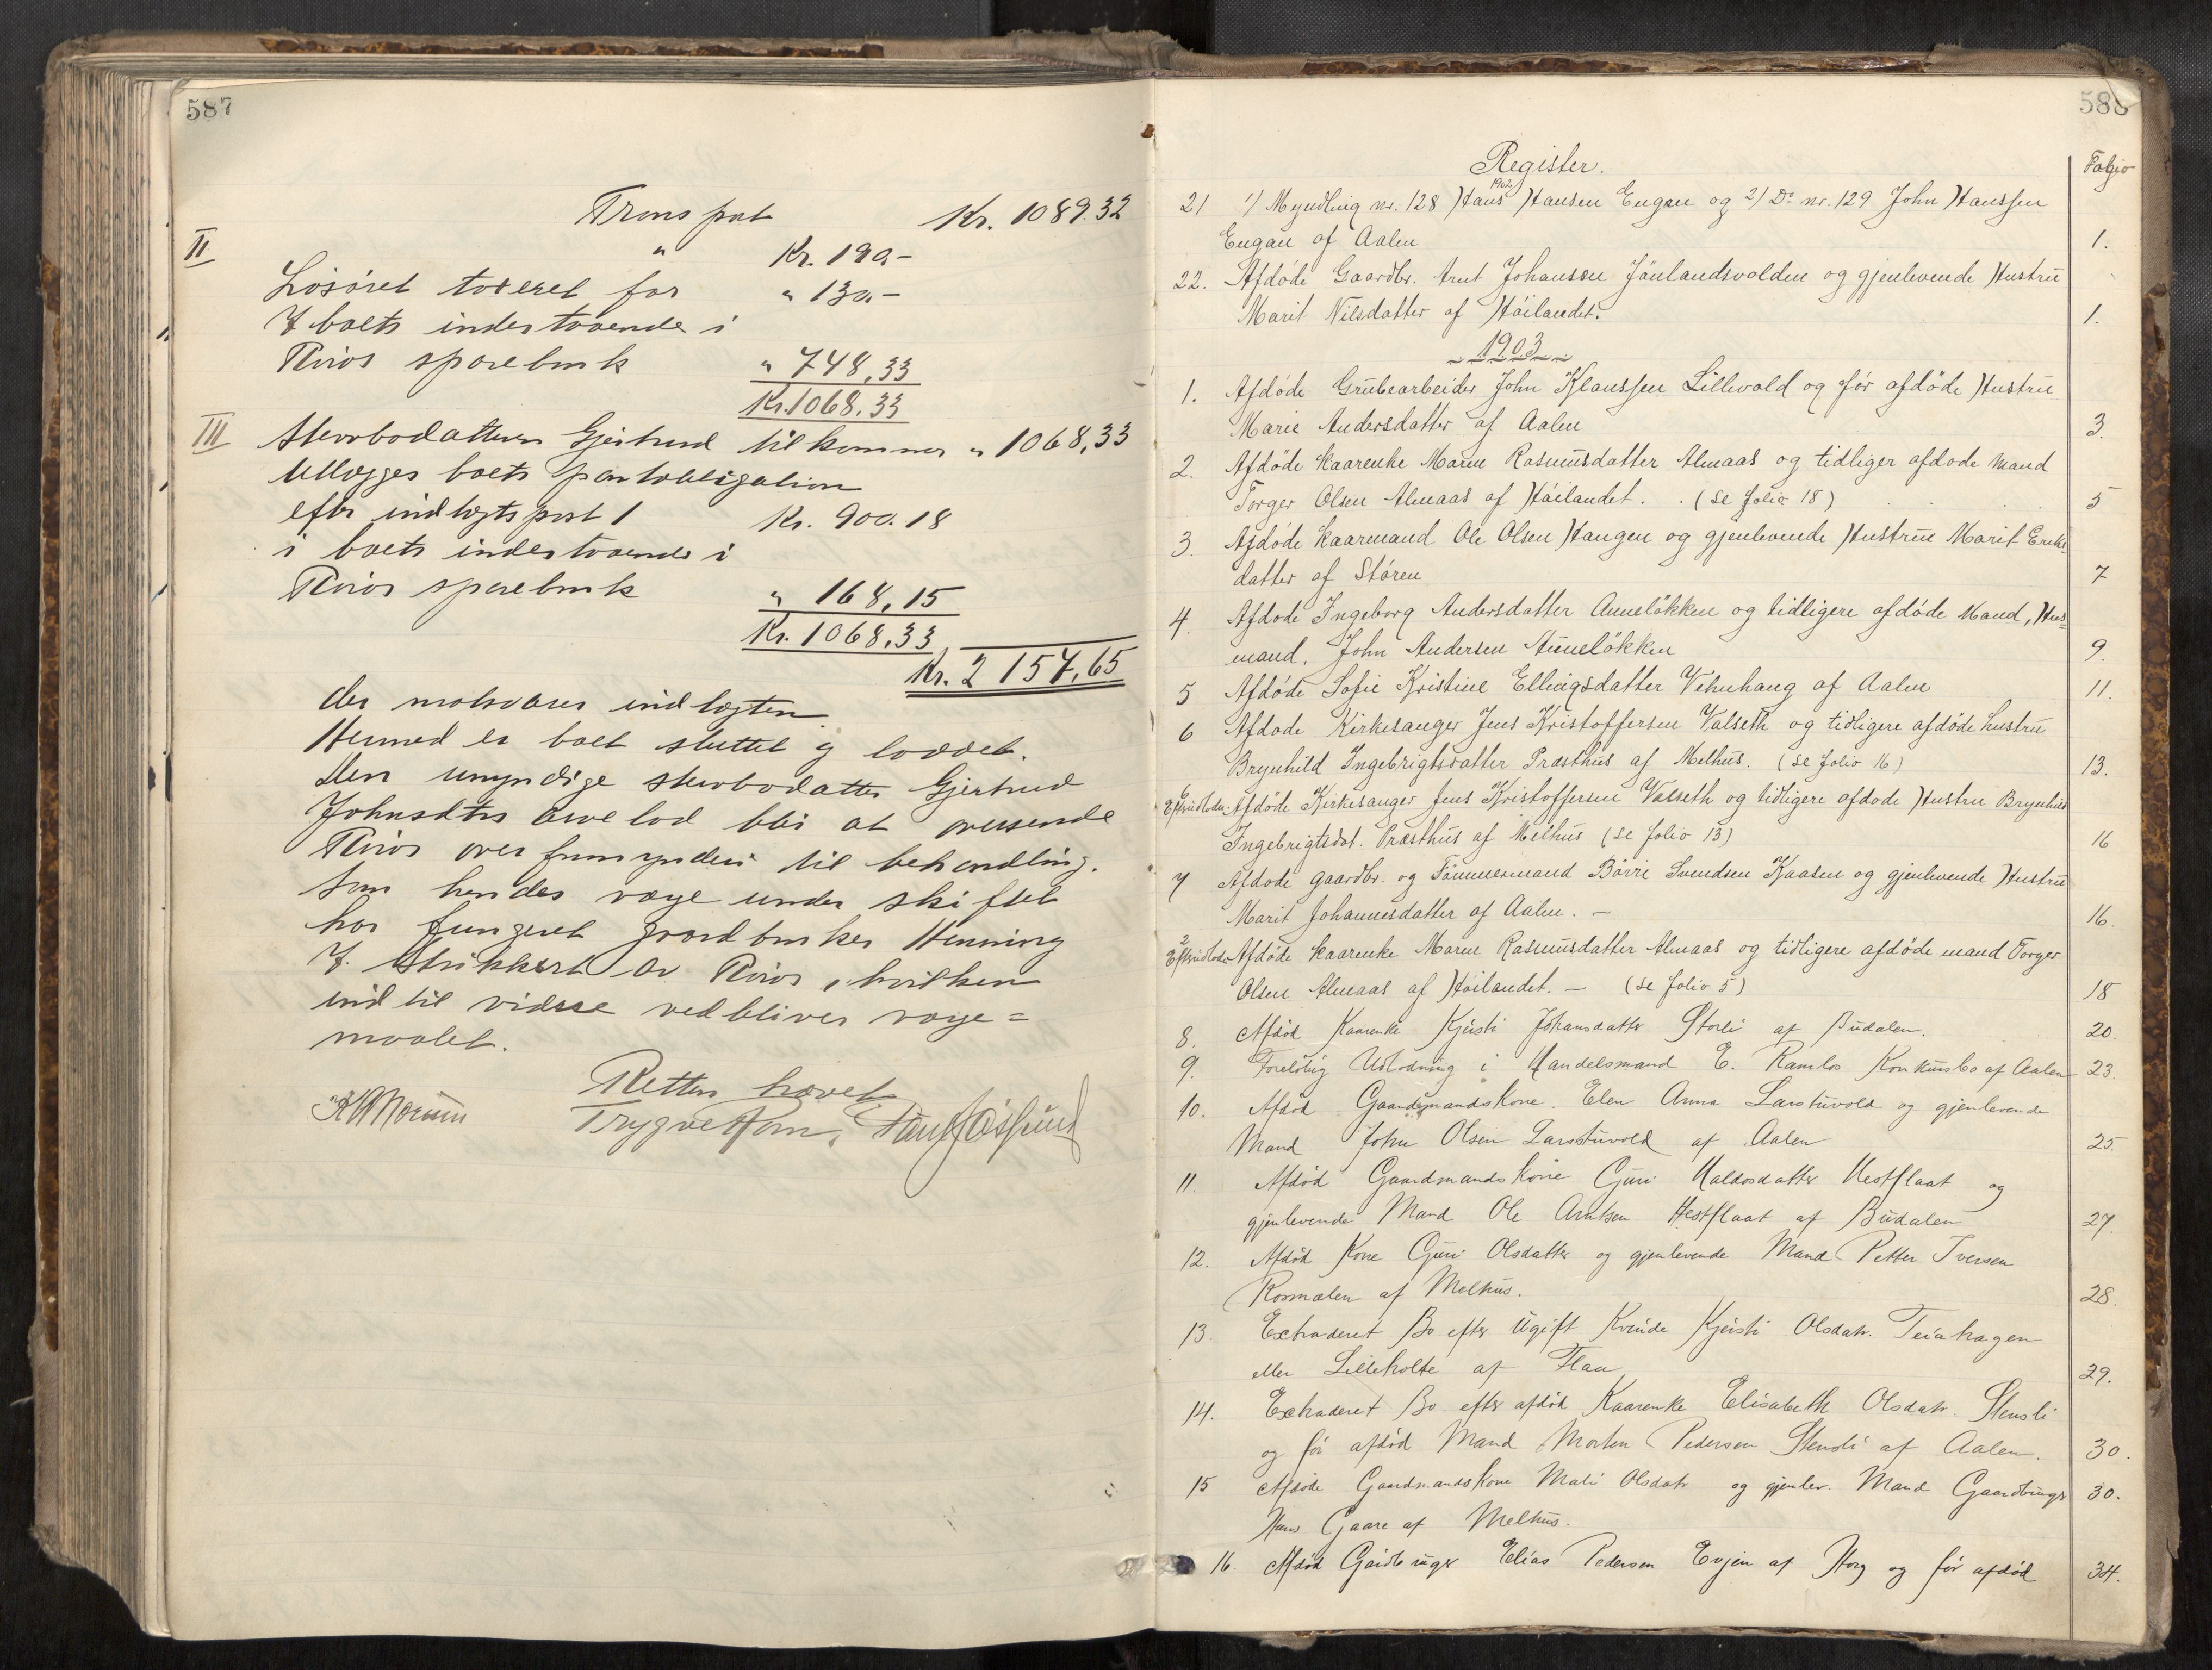 587
Transport Kr. 1089.32
II
" Kr. 190.-
Løsøret taxeret for " 130.-
I boets indestaaende i
Røros sparebank " 748,33
Kr. 1068.33
III Stervbodatteren Gjertrud tilkommer " 1068,33
Utlægges boets pantobligation
efter indtægtspost 1 Kr. 900.18
i boets indestaaende i
Røros sparebank " 168,15
Kr. 1068.33
Kr. 2157,65
der motsvarer indtægten.
Hermed er boet sluttet og loddet.
Den umyndige stervbodatter Gjertrud
Johnsdtrs arvelod blir at oversende
Røros overformynderi til behandling.
Som hendes verge under skiftet
har fungeret gaardbruker Henning
J. Strikkert av Røros, hvilken
indtil videre vedbliver verge=
maalet.
Retten hævet
Trygve
588
Register. Folio
1902
21 1/ Myndling nr. 128 Hans Hansen Engan og 2/ Do nr. 129 John Hanssen
Engan af Aalen 1.
22. Afdøde Gaardbr. Arnt Johansen Jönlandsvolden og gjenlevende Hustru
Marit Nilsdatter af Høilandet. 1.
1903
1. Afdøde Grubearbeider John Klaussen Lillevold og før afdøde Hustru
Marie Andersdatter af Aalen 3.
2. Afdøde Kaarenke Maren Rasmusdatter Almaas og tidliger afdøde Mand
Torger Olsen Almaas af Høilandet. (se folio 18) 5
3. Afdøde Kaarmand Ole Olsen Haugen og gjenlevende Hustrue Marit Eriks-
datter af Støren 7
4. Afdøde Ingeborg Andersdatter Auneløkken og tidligere afdøde Mand, Hus=
mand, John Andersen Auneløkken 9.
5 Afdøde Sofie Kristine Ellingsdatter Vehuhaug af Aalen 11.
6 Afdøde Kirkesanger Jens Kristoffersen Valseth og tidligere afdøde hustru
Brynhild Ingebrigtsdatter Præsthus af Melhus. (se folio 16) 13.
6
Afdøde Kirkesanger Jens Kristoffersen Valseth og tidligere afdøde Hustru Brynhild
Ingebrigtsdat. Præsthus af Melhus (se folio 13) 16
7 Afdøde gaardbr. og Tømmermand Börre Svendsen Kaasen og gjenlevende Hustru
Marit Johannesdatter af Aalen. - 16.
2
Afdøde Kaarenke Maren Rasmusdatter Almaas og tidligere afdøde mand Torger
Olsen Almaas af Høilandet. - (se folio 5) 18
8. Afdød Kaarenke Kjersti Johansdatter Storli af Budalen. 20.
9. Foreløbig Udlodning i Handelsmand E. Ramlos Konkursbo af Aalen 23.
10. Afdød Gaardmandskone Elen Anna Larstuvold og gjenlevende
Mand John Olsen Larstuvold af Aalen 25.
11. Afdød Gaardmandskone Guri Haldosdatter Hestflaat og
gjenlevende Mand Ole Arntsen Hestflaat af Budalen 27.
12. Afdød Kone Guri Olsdatter og gjenlevende Mand Petter Iversen
Rosmælen af Melhus. 28.
13. Extraderet Bo efter Ugift Kvinde Kjersti Olsdatr. Teiahagen
eller Lilleholte af Flaa 29.
14. Extraderet Bo efter afdød Kaarenke Elisabeth Olsdatr. Stensli
og før afdød Mand Morten Pedersen Stensli af Aalen. 30.
15 Afdøde Gaardmandskone Mali Olsdatr og gjenlev. Mand Gaardbruger 30.
Hans Gaare af Melhus.
16. Afdød Gaardbruger Elias Pedersen Evjen af Horg og før afdød 34.